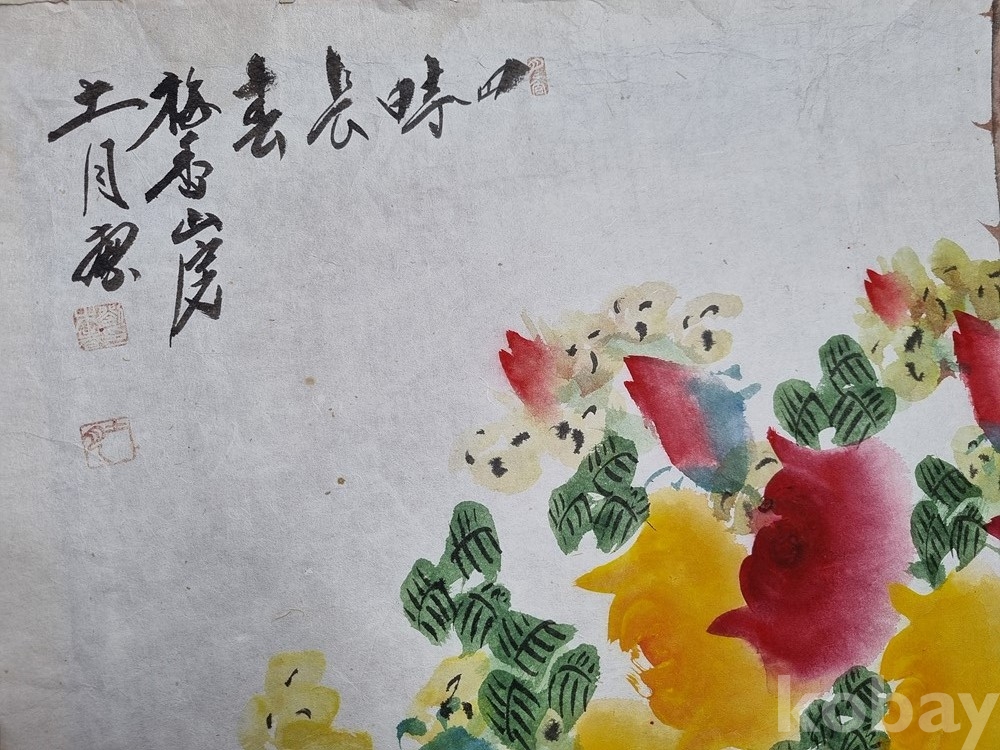 四時長春
梅香山房
土月
kobay